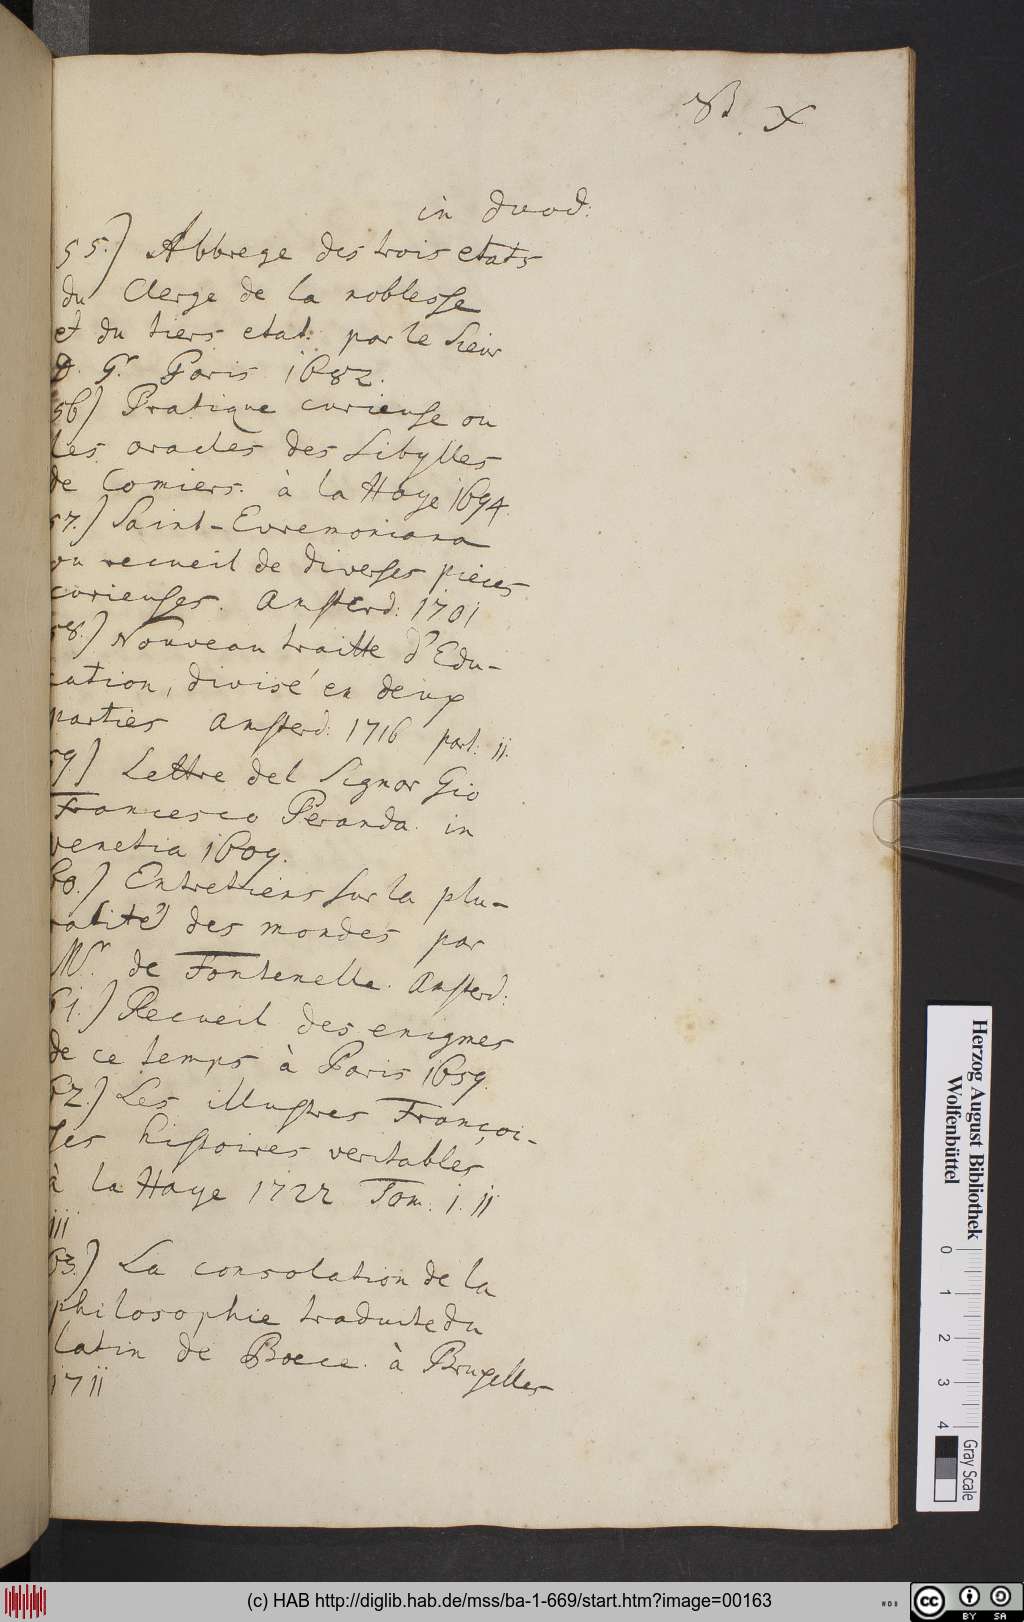 in duod:
55.) Abbrege des trois etats
du Clerge de la noblesse
et du tiers etat: par le Sieur
D. G.r Paris 1682.
56) Pratique curieuse ou
les oracles des Sibylles
de Comiers. à la Haye 1694.
57.) Saint-Evremoniana
ou recueil de diverses pieces
curieuses. Amsterd: 1701
58.) Nouveau traitte d'Edu-
cation, divisé en deux
parties Amsterd: 1716 part: ii.
59) Lettre del Signor Gio
Francesco Peranda. in
venetia 1609.
60.) Entretiens sur la plu-
ralité des mondes par
Mr. de Fontenelle. Amsterd:
61.) Recueil des enigmes
de ce temps à Paris 1659.
62.) Les illustres Françoi-
ses histoires veritables
à la Haye 1722 Tom. i. ii
iii
63.) La consolation de la
philosophie traduite du
latin de Boece. à Bruxelles
1711
Herzog August Bibliothek
Wolfenbüttel
0 1 2 3 4
Gray Scale
(c) HAB http://diglib.hab.de/mss/ba-1-669/start.htm?image=00163
cc BY SA